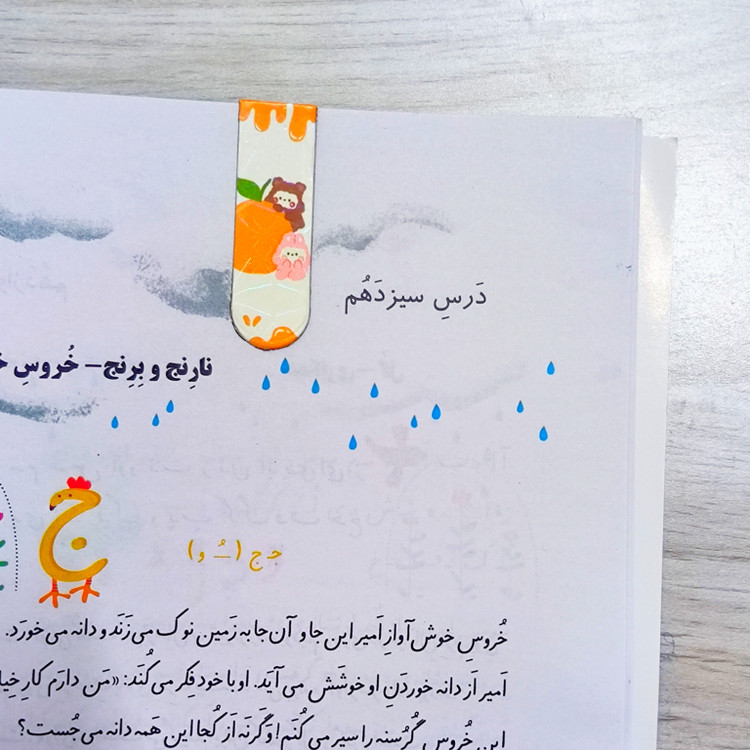 دَرسِ سیزدَهُم
نارِنج و بِرِنج – خُروسِ
ج
جـ ج (ـُ و)
خُروسِ خوش‌آوازِ اَمیر این‌جا و آن‌جا به زَمین نوک می‌زَنَد و دانه می‌خورَد.
اَمیر اَز دانه خوردَنِ او خوشَش می‌آیَد. او با خود فِکر می‌کُنَد: «مَن دارَم کار
این خُروسِ گُرُسنه را سیر می‌کُنَم! وَگَرنَه اَز کُجا این هَمه دانه می‌جُست؟